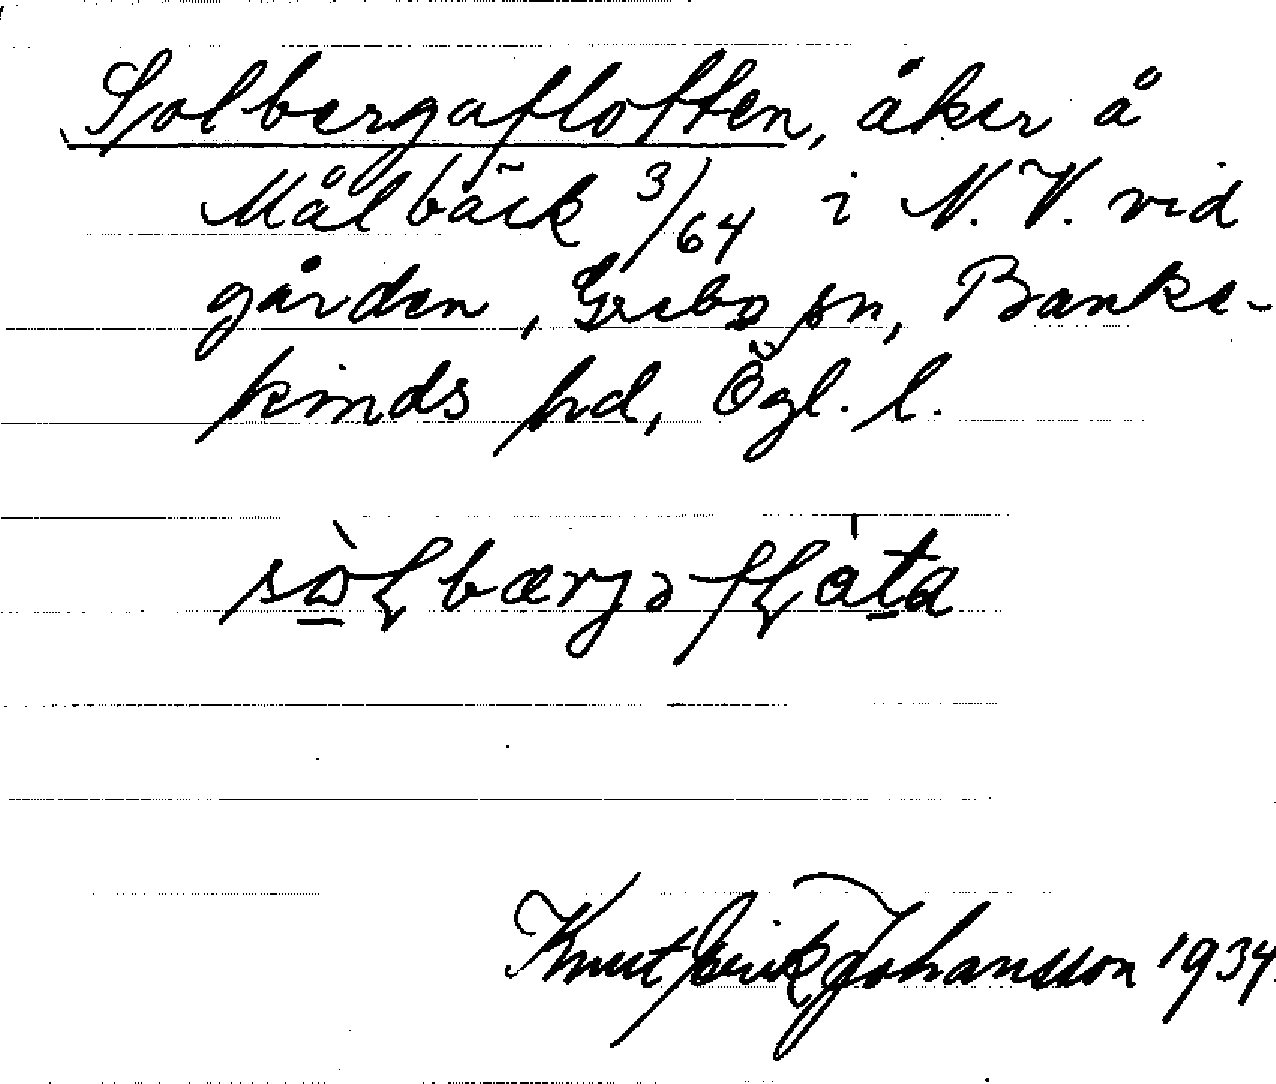 Solbergaflotten, åker å
Målbäck 3/64 i N.V. vid
gården, Grebo sn, Banke-
kinds hd, Ögl. l.
Knut Erik Johansson 1934